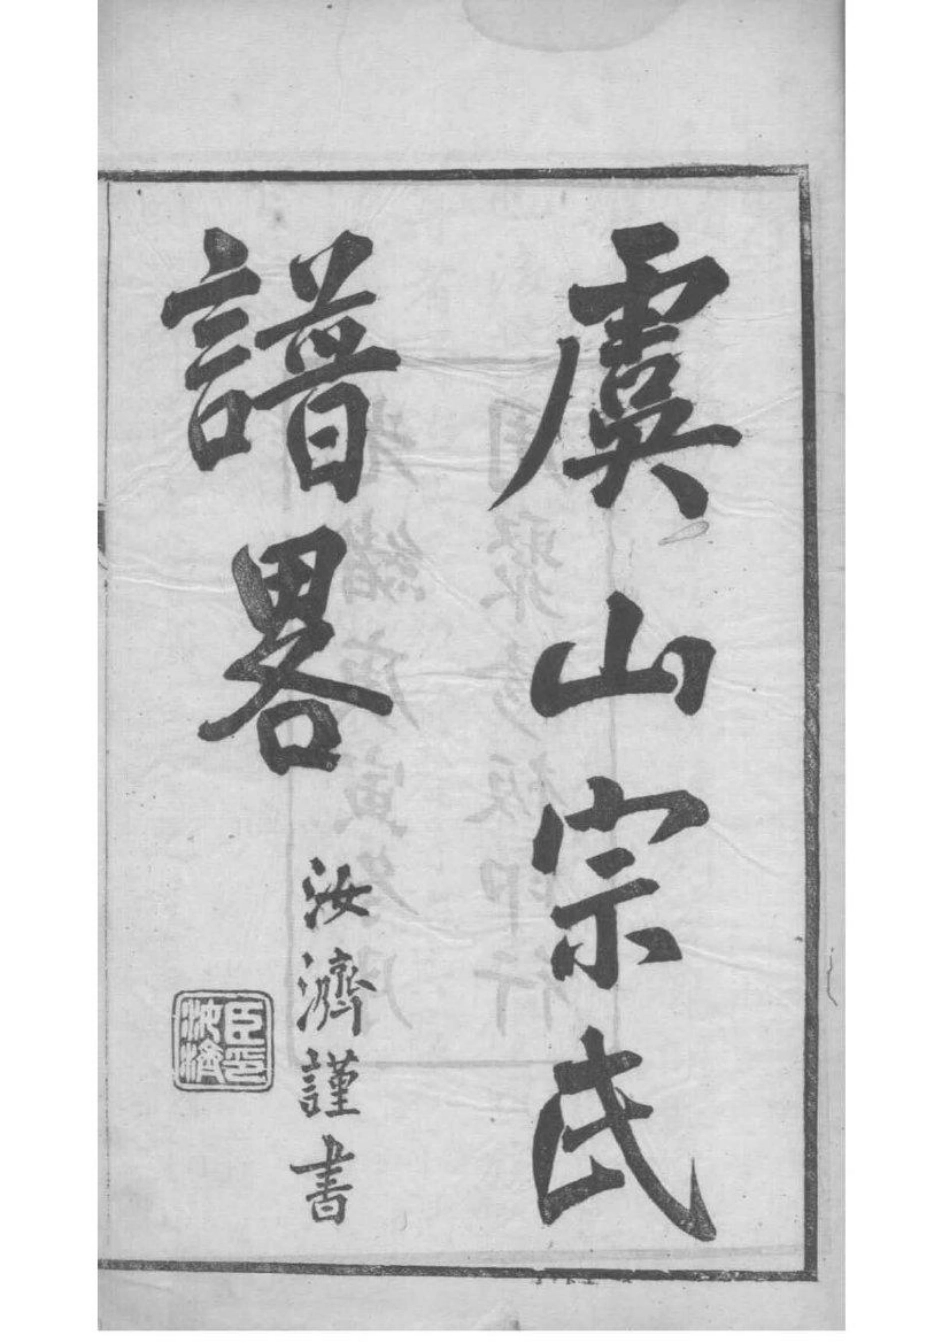 虞山宗氏
譜畧
汝濟謹書
臣印
汝濟